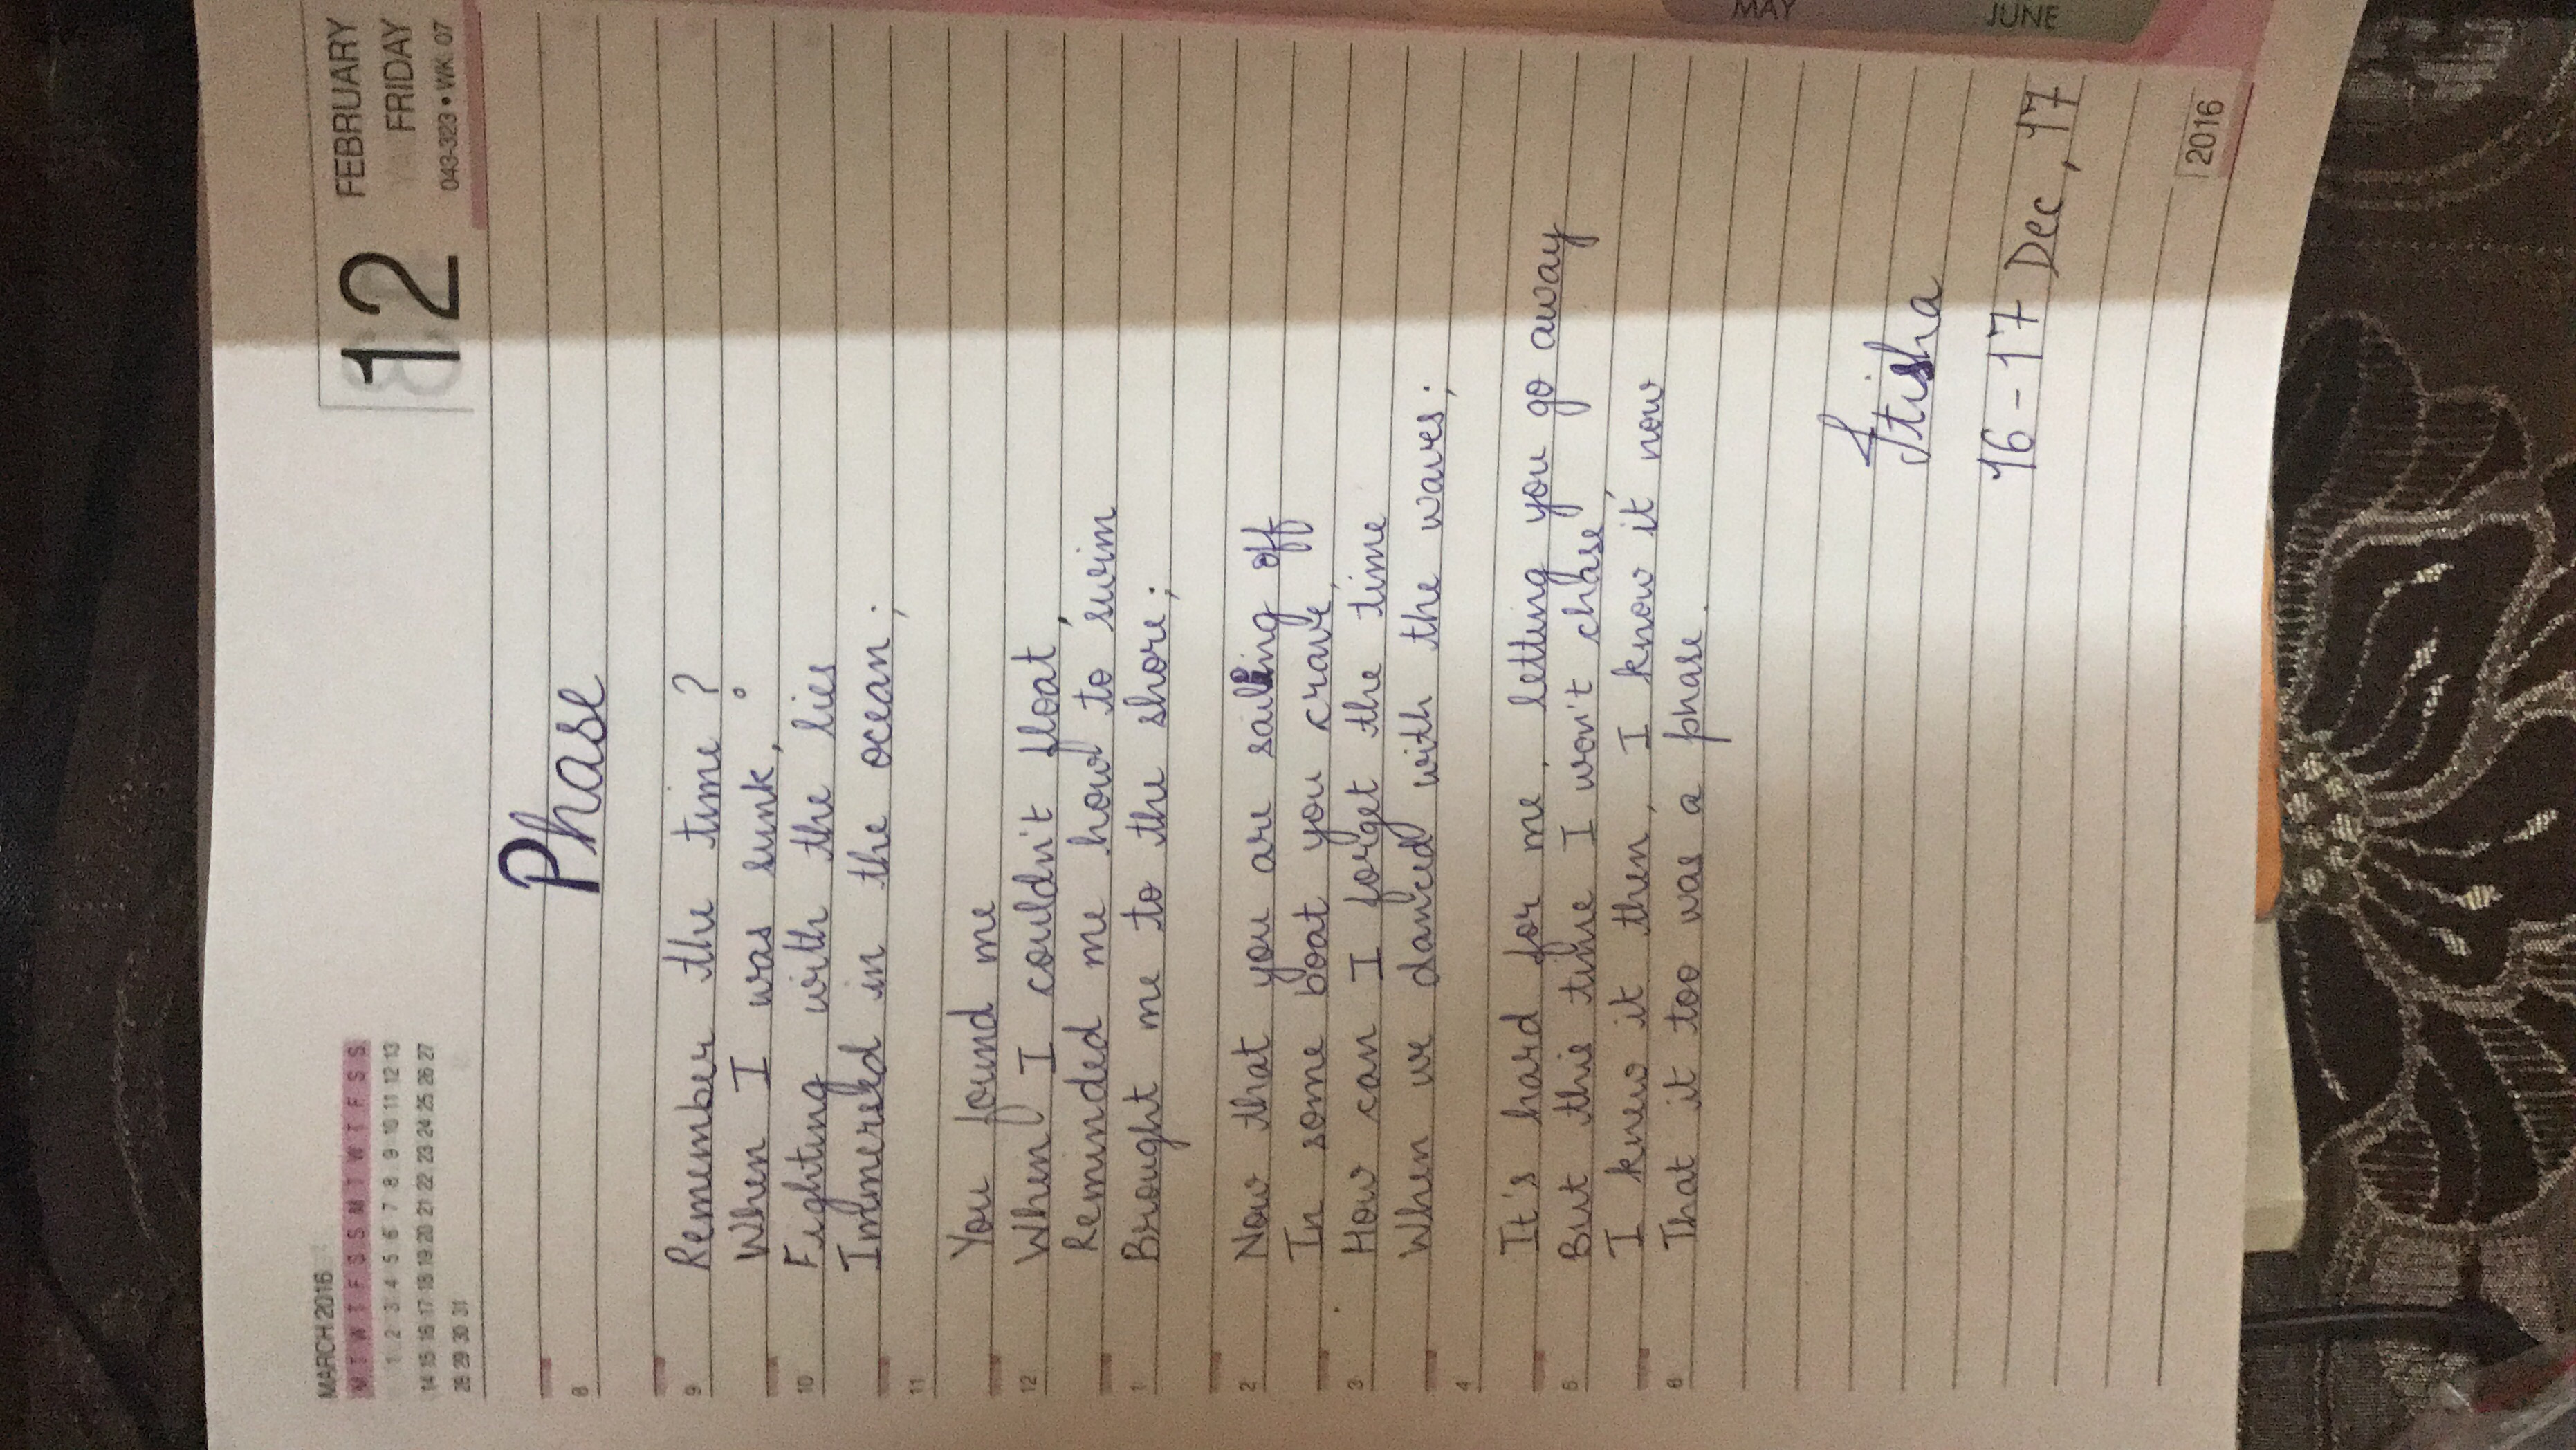 MARCH 2016
M T W T F S S M T W T F S S
1 2 3 4 5 6 7 8 9 10 11 12 13
14 15 16 17 18 19 20 21 22 23 24 25 26 27
28 29 30 31
12
FEBRUARY
FRIDAY
043-323 • WK 07
Phase
8
9
Remember the time ?
When I was sunk,
10
Fighting with the lies
Immersed in the ocean ;
11
You found me
12
When I couldn't float,
Reminded me how to swim
1
Brought me to the shore ;
2
Now that you are sailing off
In some boat you crave,
3
How can I forget the time
When we danced with the waves ;
4
It's hard for me, letting you go away
5
But this time I won't chase,
I knew it then, I know it now
6
That it too was a phase.
MAY
Itisha
16-17 Dec, 17
JUNE
2016